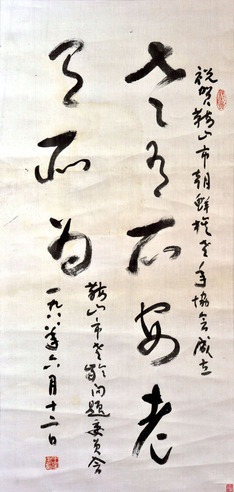 祝贺鞍山市朝鲜族老年協会成立
老有所安老
有所为
鞍山市老龄问题委员会
一九八八年六月十二日